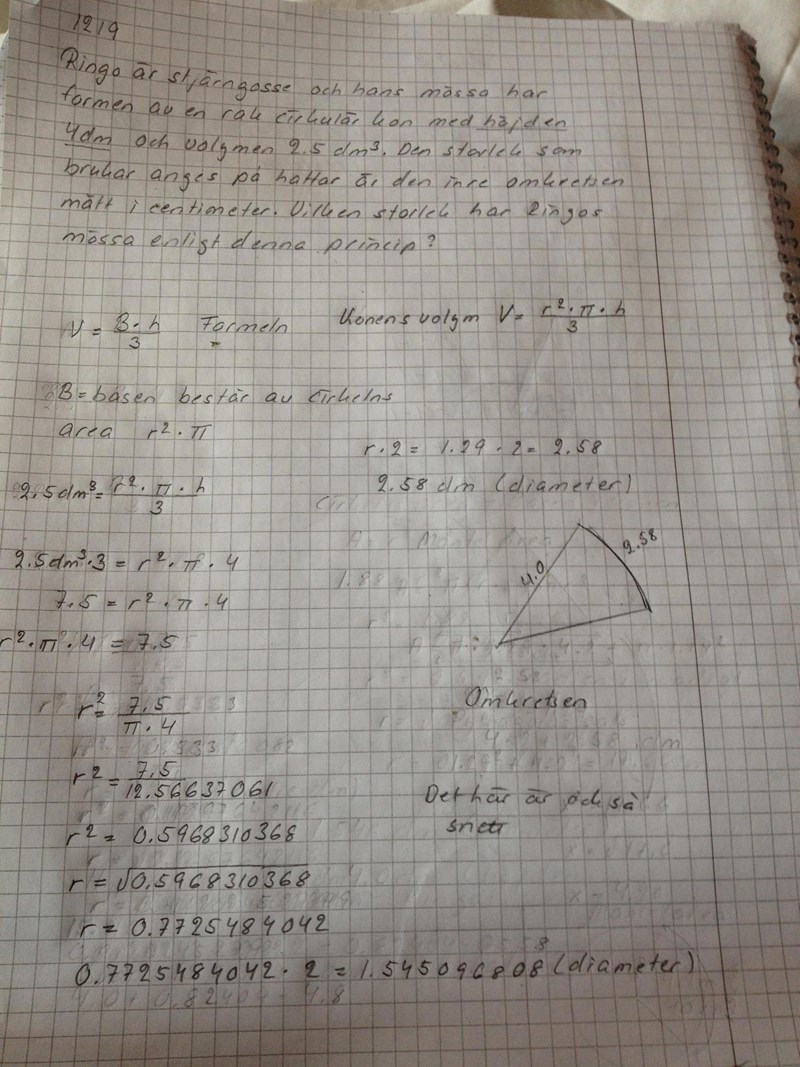 1219
Ringo är stjärngosse och hans mössa har
formen av en rak cirkulär kon med höjden
4dm och volymen 2.5 dm³. Den storlek som
brukar anges på hattar är den inre omkretsen
mätt i centimeter. Vilken storlek har Ringos
mössa enligt denna princip?
V = B·h/3 Formeln
Konens volym V = r²·π·h/3
B = basen består av cirkelns
area r²·π
r·2 = 1.29·2 = 2.58
2.58 dm (diameter)
2.5dm³ = r²·π·h/3
2.5dm³·3 = r²·π·4
7.5 = r²·π·4
r²·π·4 = 7.5
4.0
2.58
r² = 7.5/π·4
Omkretsen
r² = 7.5/12.56637061
Det här är också
r² = 0.5968310368
r = √0.5968310368
r = 0.7725484042
0.7725484042·2 = 1.545096808 (diameter)